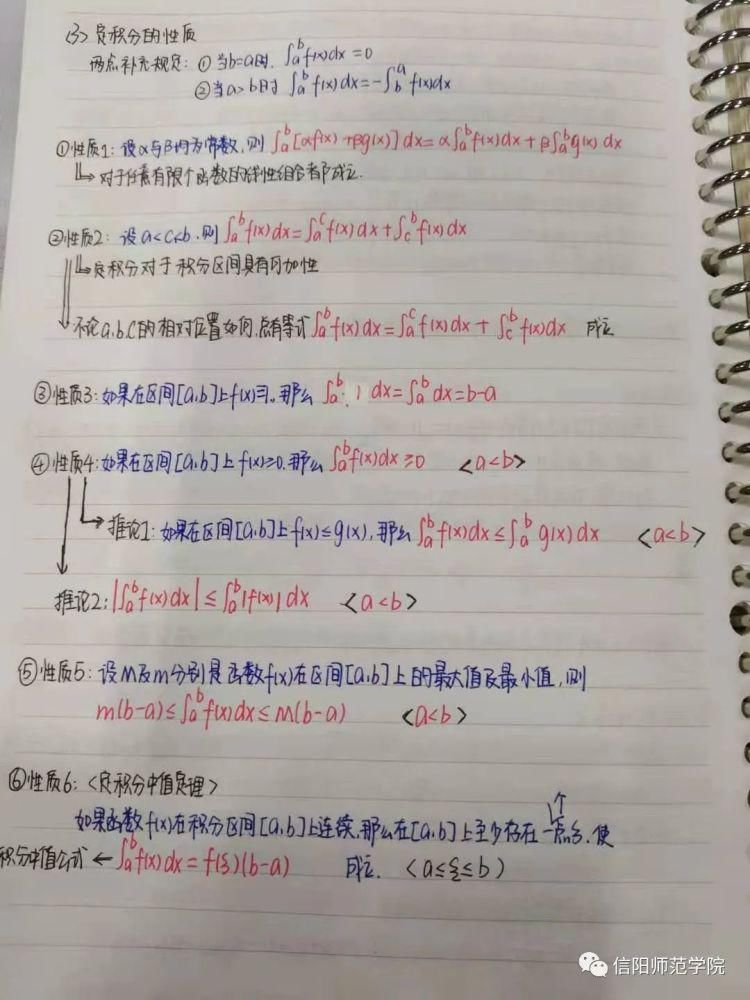 (3) 定积分的性质
两点补充规定: ① 当b=a时. ∫ₐᵇ f(x)dx = 0
② 当a>b时 ∫ₐᵇ f(x)dx = -∫_b^a f(x)dx
①性质1: 设α与β均为常数, 则 ∫ₐᵇ [αf(x)+βg(x)] dx = α∫ₐᵇ f(x)dx + β∫ₐᵇ g(x) dx
↳ 对于任意有限个函数的线性组合都成立.
②性质2: 设a<c<b. 则 ∫ₐᵇ f(x)dx = ∫ₐᶜ f(x)dx + ∫_c^b f(x)dx
↳ 定积分对于积分区间具有可加性
不论a.b.c的相对位置如何.总有等式 ∫ₐᵇ f(x)dx = ∫ₐᶜ f(x)dx + ∫_c^b f(x)dx 成立
③性质3: 如果在区间[a.b]上f(x)≡1. 那么 ∫ₐᵇ · 1 dx = ∫ₐᵇ dx = b-a
④性质4: 如果在区间[a.b]上f(x)≥0. 那么 ∫ₐᵇ f(x)dx ≥0 <a<b>
→ 推论1: 如果在区间[a.b]上f(x)≤g(x), 那么 ∫ₐᵇ f(x)dx ≤ ∫ₐᵇ g(x)dx <a<b>
推论2: |∫ₐᵇ f(x)dx| ≤ ∫ₐᵇ |f(x)| dx <a<b>
⑤性质5: 设M及m分别是函数f(x)在区间[a.b]上的最大值及最小值, 则
m(b-a) ≤ ∫ₐᵇ f(x)dx ≤ M(b-a) <a<b>
⑥性质6: <定积分中值定理>
如果函数f(x)在积分区间[a.b]上连续.那么在[a.b]上至少存在一点ξ. 使
积分中值公式 ← ∫ₐᵇ f(x)dx = f(ξ)(b-a) 成立. <a≤ξ≤b>
信阳师范学院